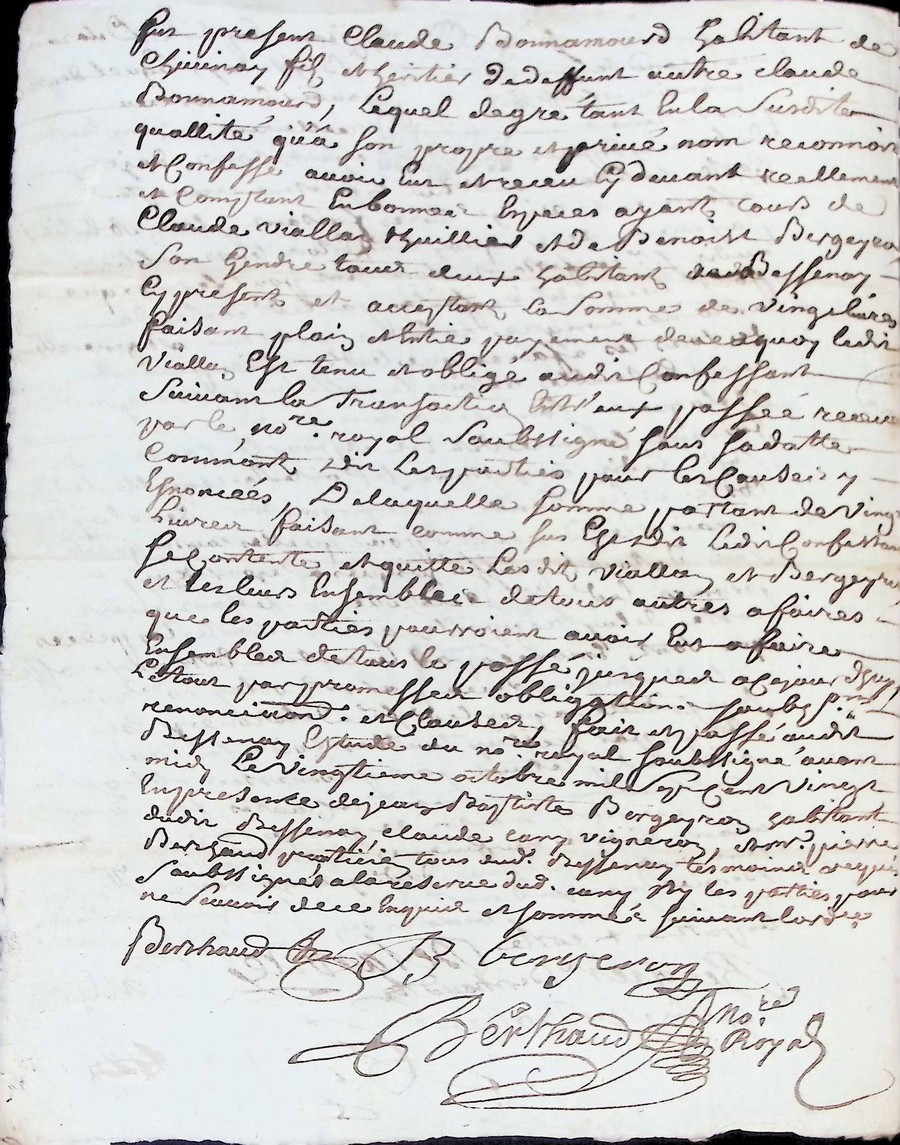 fut present Claude Bonnamourd habitant de
Chivinay fils et heritier de deffunt autre claude
Bonnamourd, Lequel de gré tant En la Susditte
quallité qu'a son propre et privé nom reconnoit
et Confesse avoir Eut et receu Cy devant reellement
et Comptant En bonnes Especes ayant cours de
Claude Viallay thuillier et de Benoist Bergeyron
Son Gendre tous deux habitant dud Bessenay
Cy present et acceptant La Somme de vingt livres
faisant plain et Entie payement de ce quoy ledit
Viallay Est tenu et obligé audit Confessant
Suivant la Transaction Entr'eux passée receue
par le nore. royal Soubssigné sous sa datte
Comm'ont dit Les parties pour les Causes y
Enoncées, De laquelle somme partant de Vingt
Livres faisant comme sus Est dit Ledit Confessant
se Contente et quitte Lesdit Viallay et Bergeyron
et les leurs Ensemble de tous autres afaires
que les parties pourroient avoir Eut a faire
Ensembles de tous le passé jusques a ce jour d'huy
Le tout par promesses obligations soubs pnes
renonciaons. et Clauses, fait et passé audit
Bessenay Estude du nore royal soubssigné avant
midy Le vingtieme octobre mil Sept Cent Vingt
En presence de jean Baptiste Bergeyron habitant
dudit Bessenay claude cany vigneron, et mr. pierre
Berthaud praticié tous dud. Bessenay tesmoins requis
Soubssignés a la reserve dud. cany Ny les parties pour
ne Scavoir de ce Enquis et sommés suivant lordce.
Berthaud B Bergeron
Berthaud Nore Royal